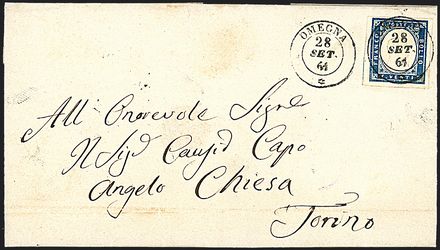 OMEGNA
28
SET.
61
FRANCO BOLLO
C. VENTI
28
SET.
61
All' Onorevole Sigre
Il Sigr Causid Capo
Angelo Chiesa
Torino